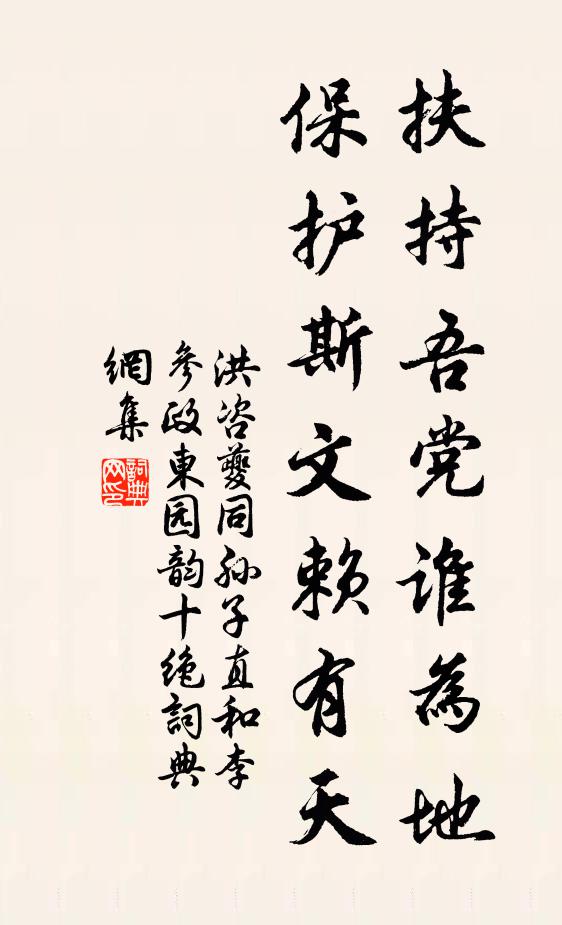 扶持吾党谁為地
保护斯文赖有天
洪咨夔同孙子直和李
参政東园韵十绝詞典
網集
詞典
网印